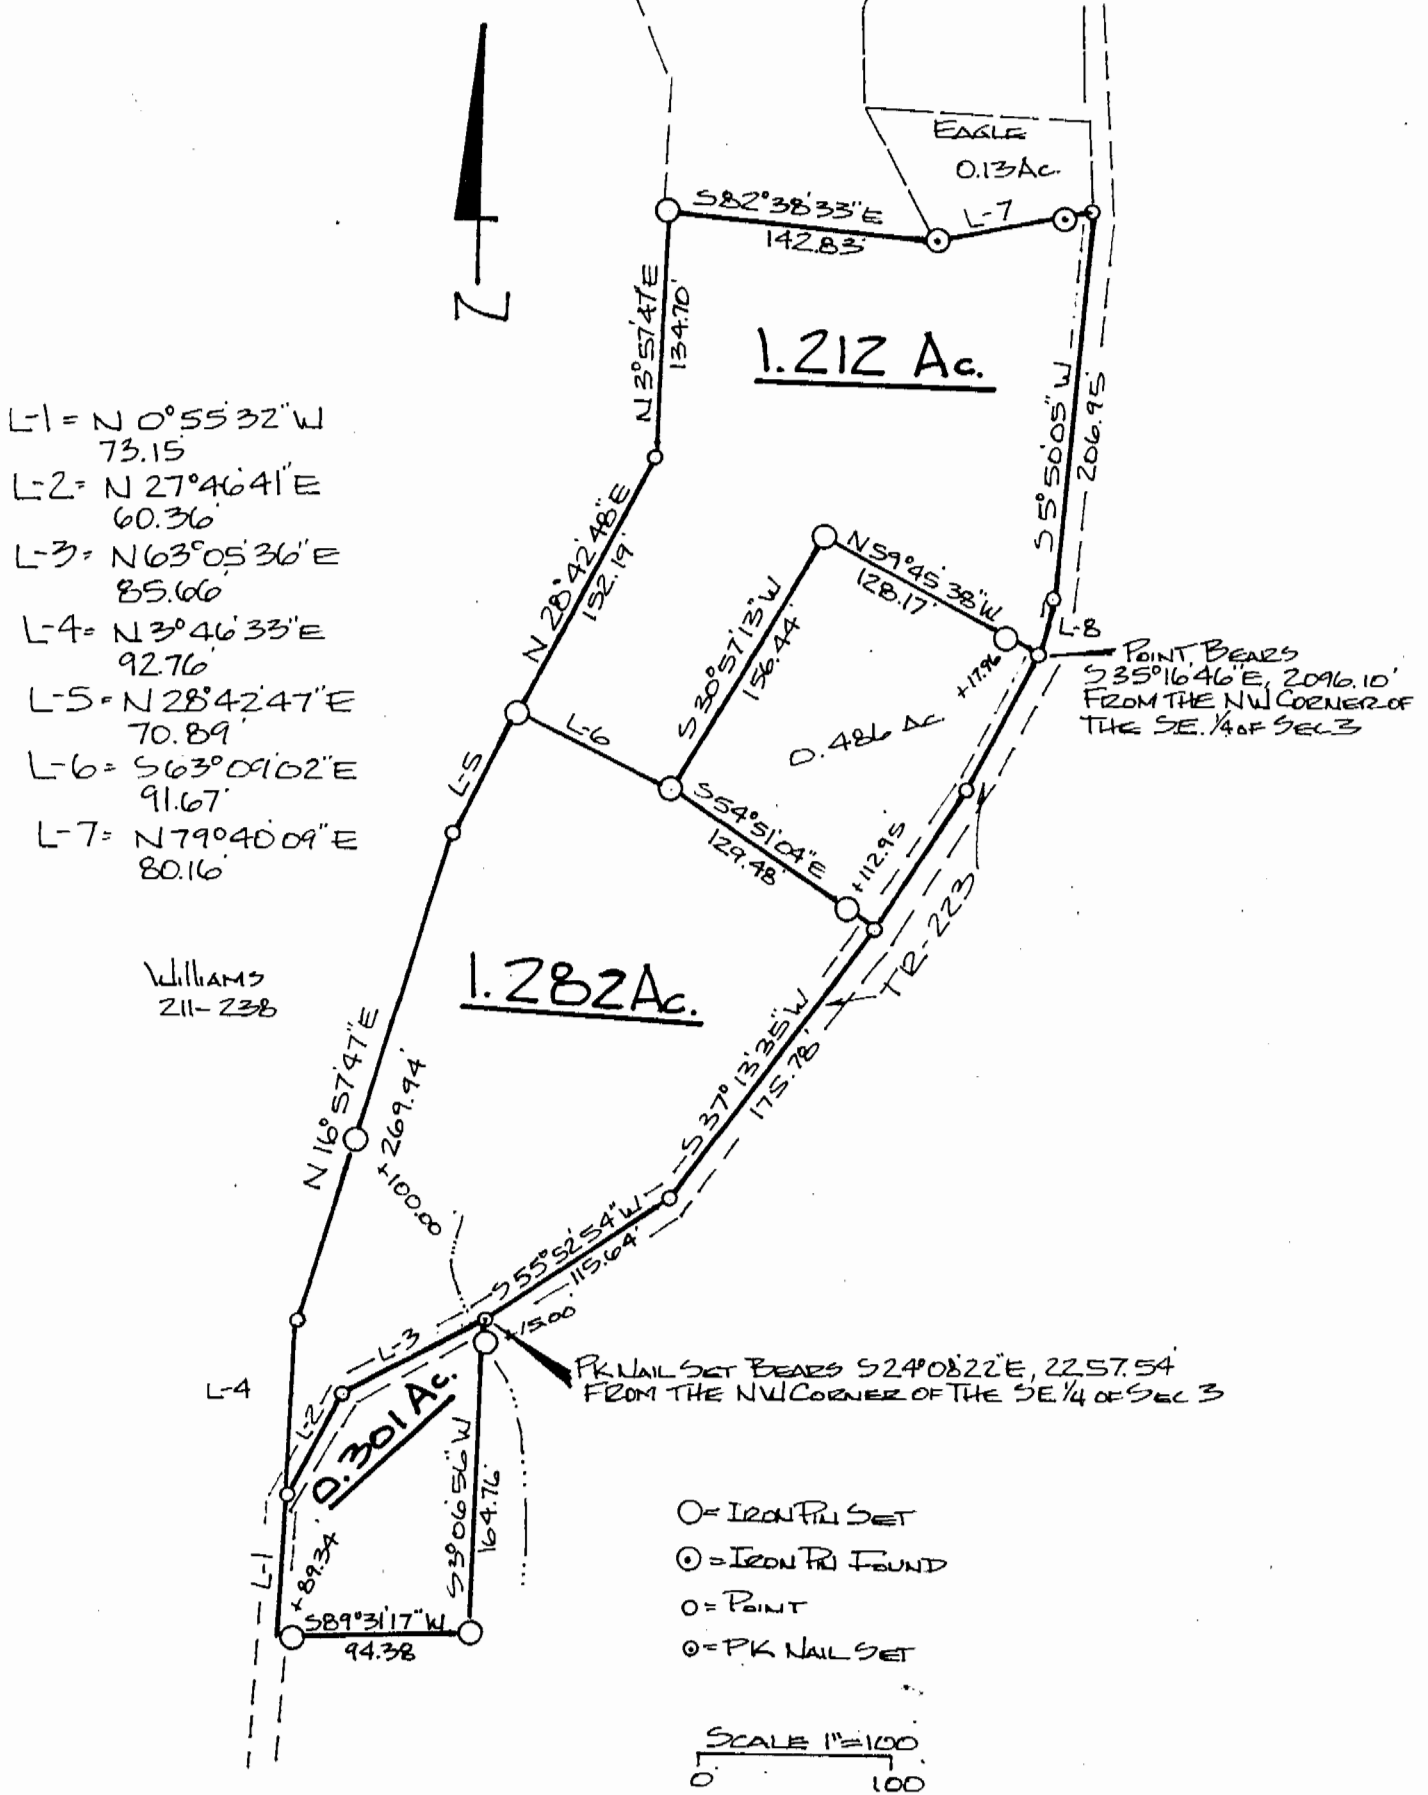 EAGLE
0.13 Ac.
S82°38'33"E
142.83'
L-7
N3°57'47"E
134.70'
1.212 Ac.
S5°50'05"W
206.95'
Z
L-1 = N 0°55'32"W
73.15'
L-2= N 27°46'41"E
60.36'
L-3= N63°05'36"E
85.66'
L-4= N3°46'33"E
92.76'
L-5= N28°42'47"E
70.89'
L-6= S63°09'02"E
91.67'
L-7= N79°40'09"E
80.16'
N 28°42'48"E
152.19'
N59°45'38"W
128.17'
+17.96
L-8
POINT BEARS
S35°16'46"E, 2096.10'
FROM THE NW CORNER OF
THE SE. 1/4 OF SEC 3
S30°57'13"W
156.44'
0.486 AC
L-6
L-5
S54°51'04"E
129.48'
+112.95
TR-223
WILLIAMS
211-238
1.282 Ac.
N16°57'47"E
+269.94'
+100.00
S37°13'35"W
175.78'
S55°52'54"W
115.64'
+15.00'
L-3
PK NAIL SET BEARS S24°08'22"E, 2257.54'
FROM THE NW CORNER OF THE SE 1/4 OF SEC 3
L-4
L-2
0.301 Ac.
S3°06'56"W
164.76'
L-1
+89.34'
S89°31'17"W
94.38
O= IRON PIN SET
⊙ = IRON PIN FOUND
o = POINT
⊙= PK NAIL SET
SCALE 1"=100'
0' 100